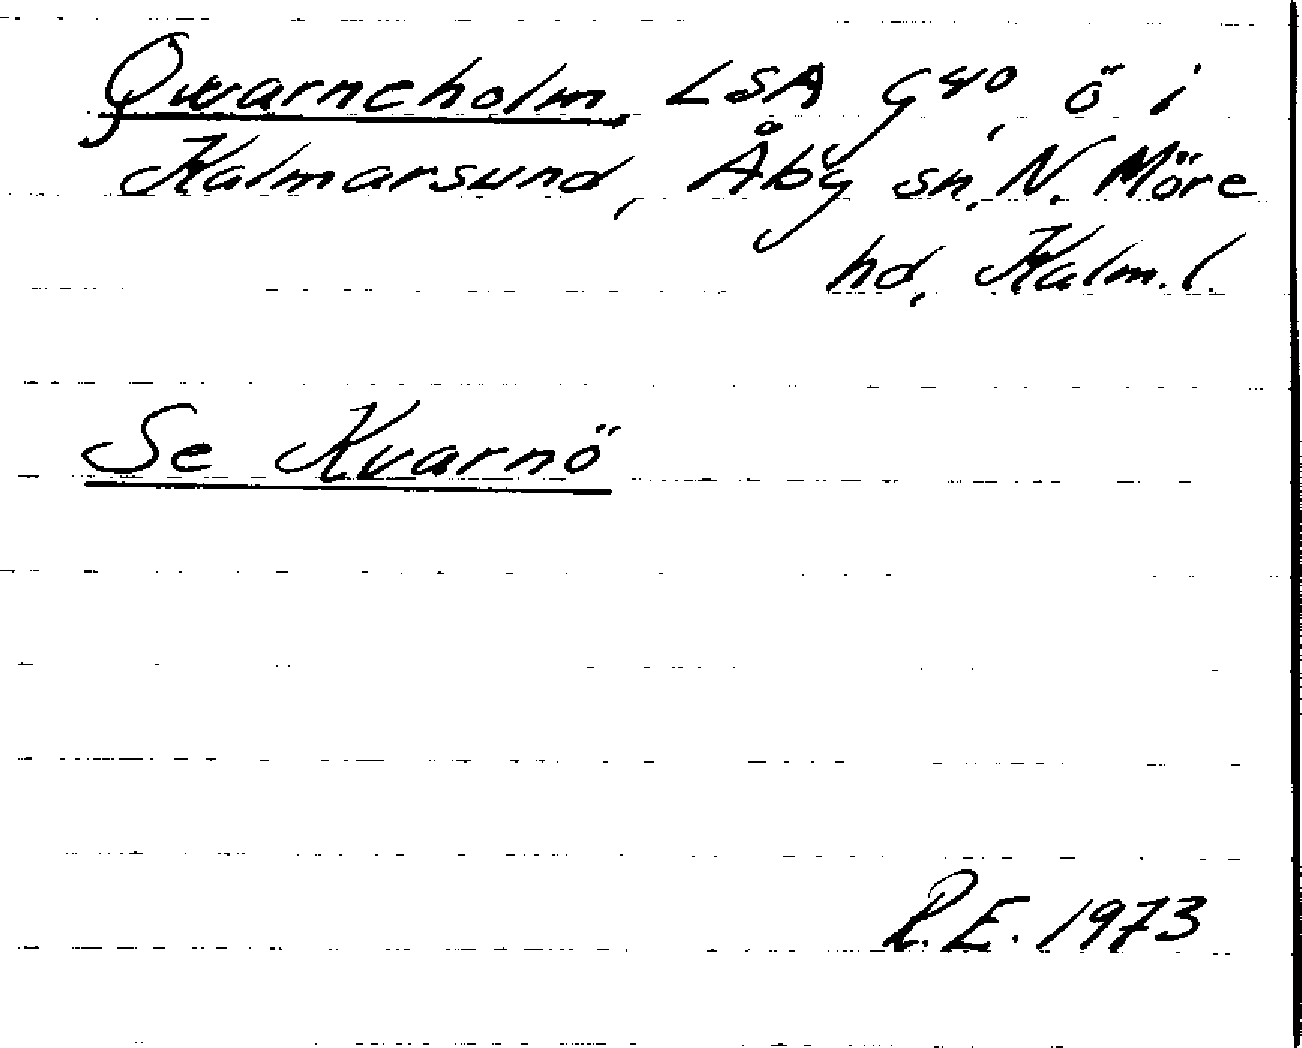 Qwarneholm LSA G 40, ö i
Kalmarsund, Åby sn, N. Möre
hd, Kalm. l.
Se Kvarnö
R.E. 1973